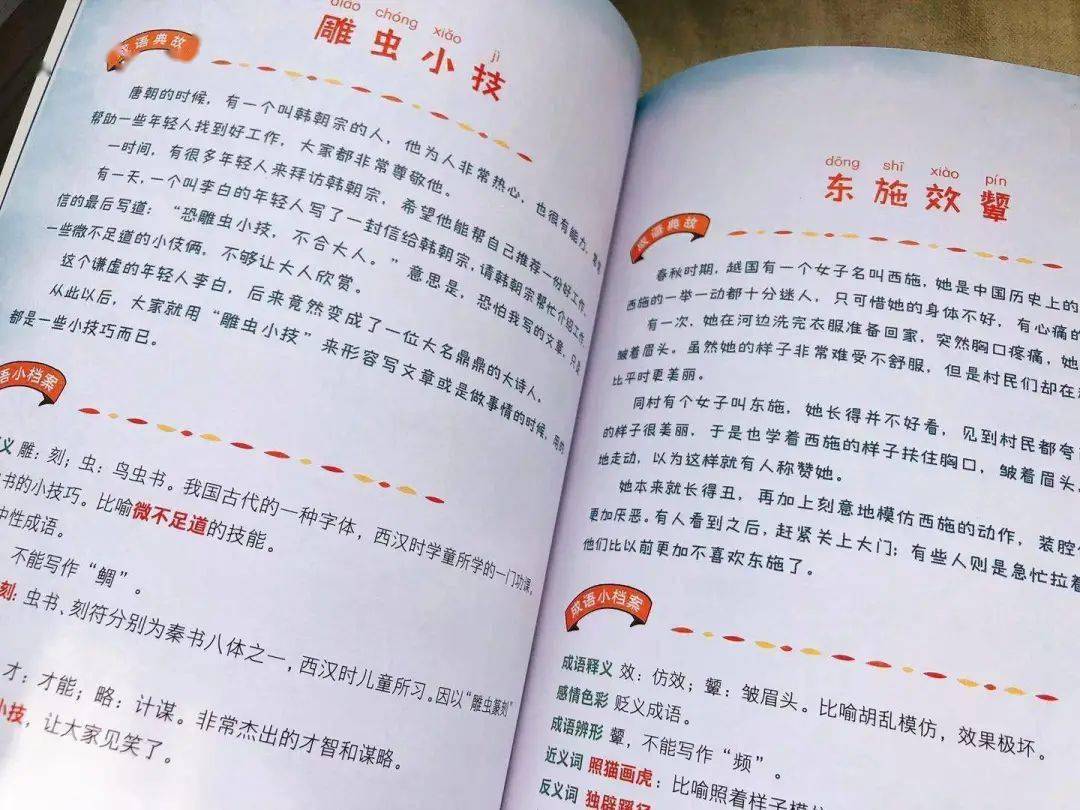 diāo chóng xiǎo jì
雕虫小技
成语典故
唐朝的时候，有一个叫韩朝宗的人，他为人非常热心，也很有能力，
帮助一些年轻人找到好工作，大家都非常尊敬他。
一时间，有很多年轻人来拜访韩朝宗，希望他能帮自己推荐一份好工作。
有一天，一个叫李白的年轻人写了一封信给韩朝宗，请韩朝宗帮忙介绍工作，
信的最后写道：“恐雕虫小技，不合大人。”意思是，恐怕我写的文章，只是
一些微不足道的小伎俩，不够让大人欣赏。
这个谦虚的年轻人李白，后来竟然变成了一位大名鼎鼎的大诗人。
从此以后，大家就用“雕虫小技”来形容写文章或是做事情的时候，用的
都是一些小技巧而已。
语小档案
义 雕：刻；虫：鸟虫书。我国古代的一种字体，西汉时学童所学的一门功课，
书的小技巧。比喻微不足道的技能。
中性成语。
不能写作“鲷”。
刻：虫书、刻符分别为秦书八体之一，西汉时儿童所习。因以“雕虫篆刻”
才：才能；略：计谋。非常杰出的才智和谋略。
小技，让大家见笑了。
dōng shī xiào pín
东施效颦
成语典故
春秋时期，越国有一个女子名叫西施，她是中国历史上的
西施的一举一动都十分迷人，只可惜她的身体不好，有心痛的
有一次，她在河边洗完衣服准备回家，突然胸口疼痛，她
皱着眉头。虽然她的样子非常难受不舒服，但是村民们却在
比平时更美丽。
同村有个女子叫东施，她长得并不好看，见到村民都夸
的样子很美丽，于是也学着西施的样子扶住胸口，皱着眉头，
地走动，以为这样就有人称赞她。
她本来就长得丑，再加上刻意地模仿西施的动作，装腔
更加厌恶。有人看到之后，赶紧关上大门；有些人则是急忙拉着
他们比以前更加不喜欢东施了。
成语小档案
成语释义 效：仿效；颦：皱眉头。比喻胡乱模仿，效果极坏。
感情色彩 贬义成语。
成语辨形 颦，不能写作“频”。
近义词 照猫画虎：比喻照着样子模
反义词 独辟蹊径